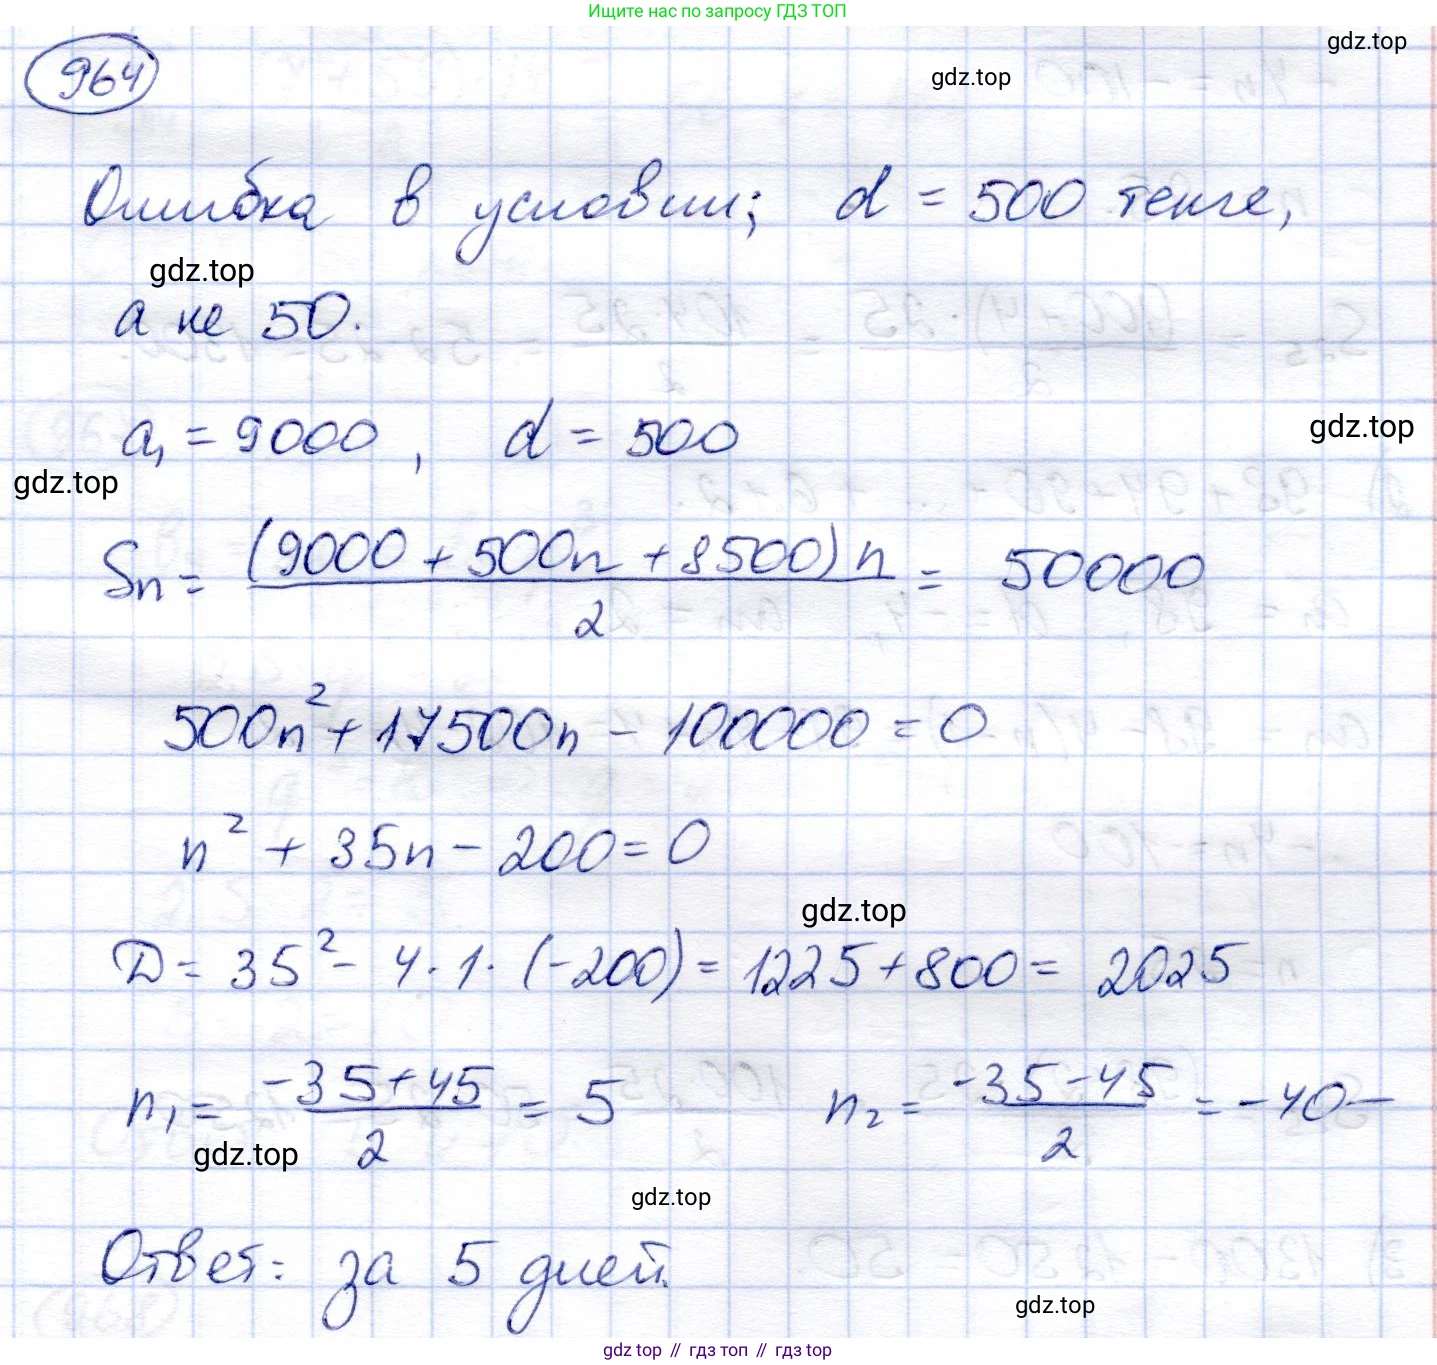 Ищите нас по запросу ГДЗ ТОП
gdz.top
964
gdz.top
Ошибка в условии; d = 500 тенге,
gdz.top
а не 50.
a₁ = 9000, d = 500
gdz.top
gdz.top
Sn = (9000 + 500n + 8500)n / 2 = 50000
500n² + 17500n - 100000 = 0
n² + 35n - 200 = 0
gdz.top
D = 35² - 4·1·(-200) = 1225 + 800 = 2025
n₁ = -35+45 / 2 = 5 n₂ = -35-45 / 2 = -40 -
gdz.top
gdz.top
Ответ: за 5 дней.
gdz.top
gdz top // гдз топ // гдз top